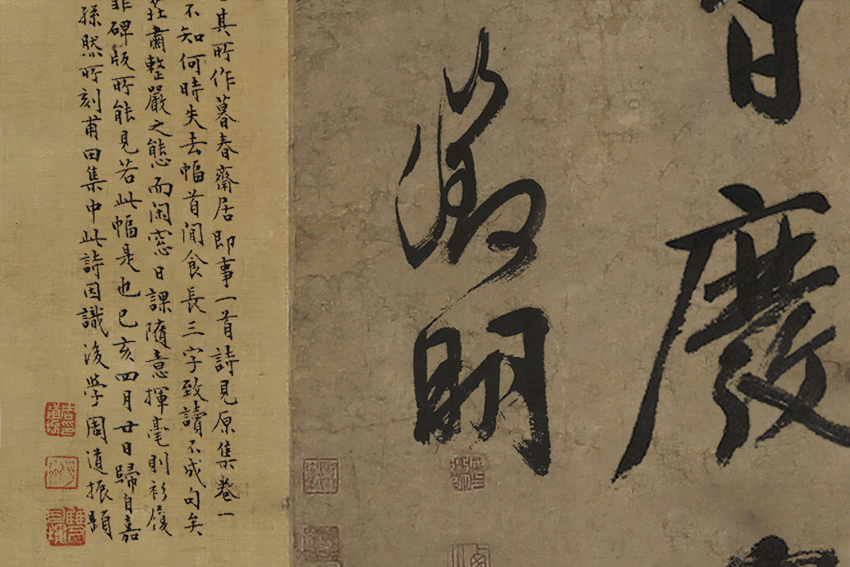 廢
徵明
其所作暮春齋居即事一首詩見原集卷一
不知何時失去幅首閒食長三字致讀不成句矣
莊肅整嚴之態而閑窓日課隨意揮毫則衫履
非碑版所能見若此幅是也己亥四月廿日歸自嘉
孫然所刻甫田集中此詩因識後學周道振題